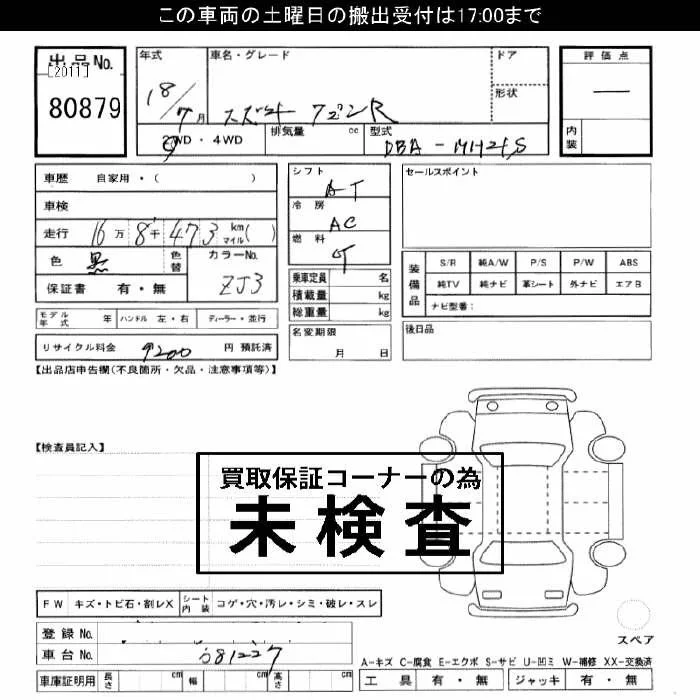 この車両の土曜日の搬出受付は17:00まで
出品No.
[2011]
80879
年式
18/7月
車名・グレード
スズキ ワゴンR
ドア
形状
評価点
―
内装
2WD・4WD
排気量 cc
型式
DBA-MH21S
車歴 自家用・( )
車検
走行 16万8千473 km マイル( )
色 黒 色替
カラーNo.
ZJ3
保証書 有・無
モデル年式 年 ハンドル 左・右 ディーラー・並行
リサイクル料金 9200 円 預託済
シフト
AT
冷房
AC
燃料
乗車定員 名
積載量 kg
総重量 kg
名変期限
月 日
セールスポイント
装備品
S/R 純A/W P/S P/W ABS
純TV 純ナビ 革シート 外ナビ エアB
ナビ型番:
後日品
【出品店申告欄(不良箇所・欠品・注意事項等)】
【検査員記入】
買取保証コーナーの為
未検査
FW キズ・トビ石・割レX シート内装 コゲ・穴・汚レ・シミ・破レ・スレ
登録No.
車台No. 681227
車庫証明用 長さ cm 幅 cm 高さ cm
スペア
A-キズ C-腐食 E-エクボ S-サビ U-凹ミ W-補修 XX-交換済
工具 有・無 ジャッキ 有・無